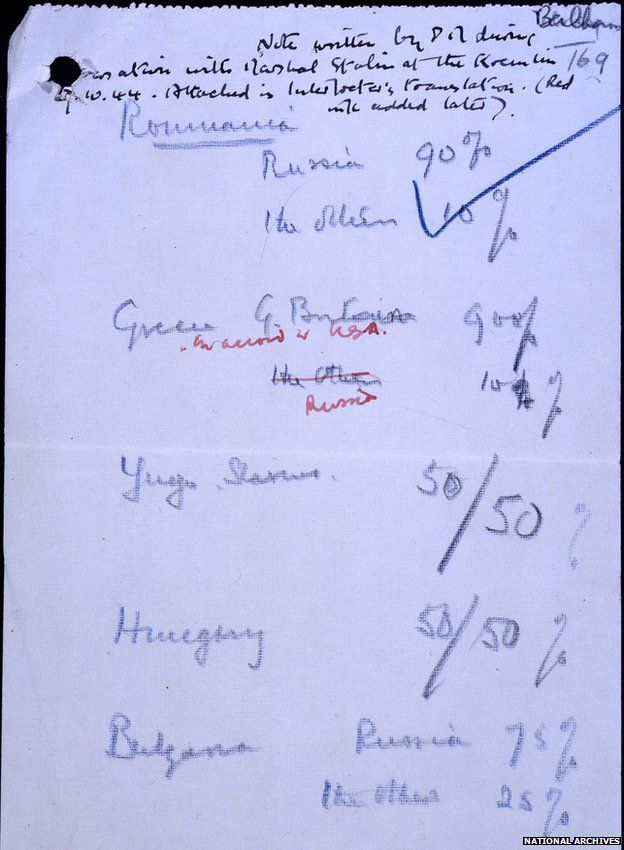 169
Note written by PM during
conversation with Marshal Stalin at the Kremlin
9.10.44. Attached is Interpreter's translation. (Red
ink added later).
Roumania
Russia 90%
The others 10%
Greece G. Britain 90%
in accord w USA.
The others 10%
Russia
Yugo Slavia. 50/50 %
Hungary 50/50 %
Bulgaria Russia 75%
The others 25%
NATIONAL ARCHIVES